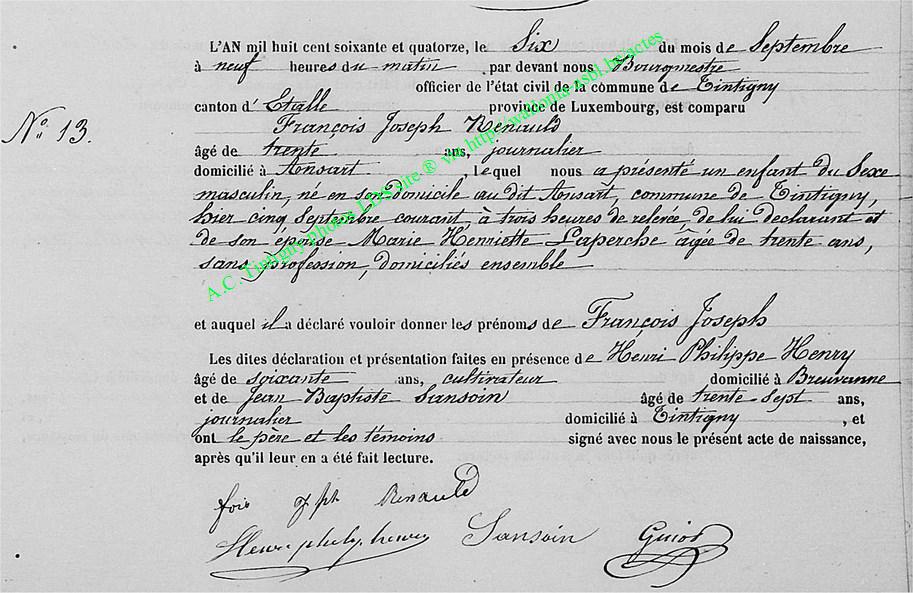 L'AN mil huit cent soixante et quatorze, le Six du mois de Septembre
à neuf heures du matin par devant nous Bourgmestre
officier de l'état civil de la commune de Tintigny
canton d'Etalle province de Luxembourg, est comparu
N°. 13.
François Joseph Renauld
âgé de trente ans, journalier
domicilié à Ansart, lequel nous a présenté un enfant du Sexe
masculin, né en son domicile au dit Ansart, commune de Tintigny,
hier cinq Septembre courant, à trois heures de relevée de lui déclarant et
de son epouse Marie Henriette Laperche âgée de trente ans,
sans profession, domiciliés ensemble
et auquel il a déclaré vouloir donner les prénoms de François Joseph
Les dites déclaration et présentation faites en présence de Henri Philippe Henry
âgé de soixante ans, cultivateur domicilié à Breuvanne
et de Jean Baptiste Sansoin âgé de trente-sept ans,
journalier domicilié à Tintigny, et
ont le père et les témoins signé avec nous le présent acte de naissance,
après qu'il leur en a été fait lecture.
fois jph Renauld
Henri philip henry Sansoin Guiot
A.C. Tintigny-photos LDS site ® via http://wallonia-asbl.be/actes